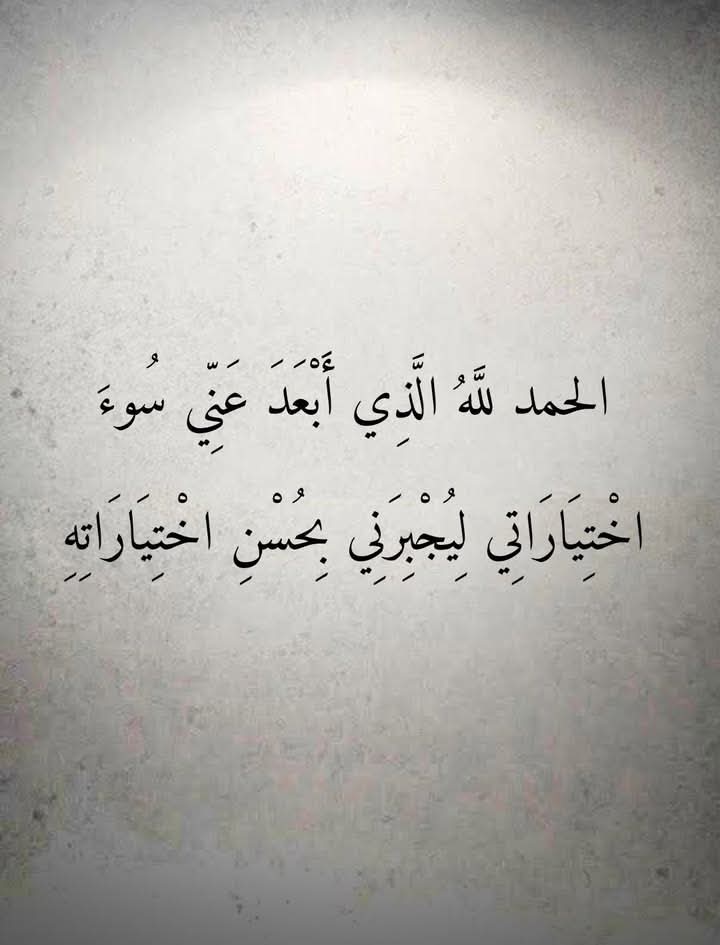 الحمد للَّهُ الَّذِي أَبْعَدَ عَنِّي سُوءَ
اخْتِيَارَاتِي لِيُجْبِرَنِي بِحُسْنِ اخْتِيَارَاتِهِ